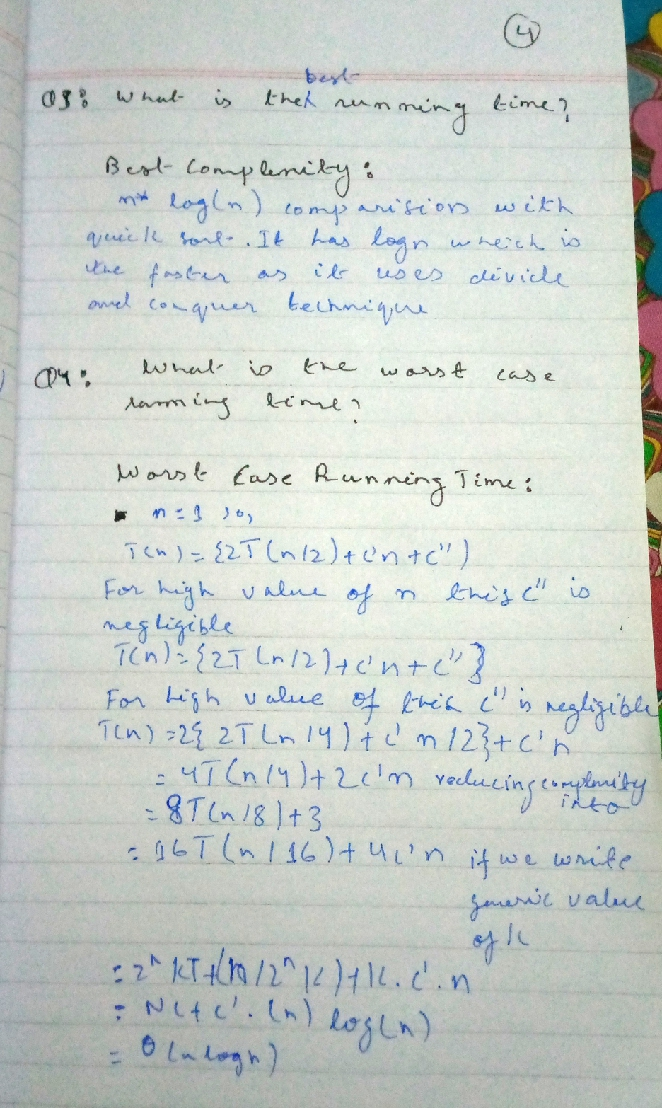 4
best
Q3: What is the running time?
Best Complenity:
n* log(n) comparision with
quick sort. It has logn which is
the faster as it uses divide
and conquer technique
Q4: What is the worst case
running time?
Worst Case Running Time:
n=1 so,
T(n)={2T(n/2)+c'n+c")
For high value of n this c" is
negligible
T(n)={2T(n/2)+c'n+c"}
For high value of this c" is negligible
T(n)=2{2T(n/4)+c'n/2}+c'n
=4T(n/4)+2c'n reducing complenity
into
=8T(n/8)+3
=16T(n/16)+4c'n if we write
generic value
of k
=2^kT+(n/2^k)+k.c'.n
=Nc+c'.(n) log(n)
=θ(nlogn)